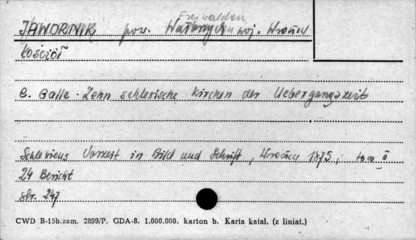 Freiwaldau
JAWORNIK pow. Wałbrzych woj. Wrocław
Kościół
C. Galle - Zehn schlesische Kirchen der Uebergangszeit
Schlesiens Vorzeit in Bild und Schrift, Wrocław 1875, tom II
24 Bericht
str. 247
CWD B-15b.zam. 2899/P. GDA-8. 1.000.000. karton b. Karta katal. (z liniat.)